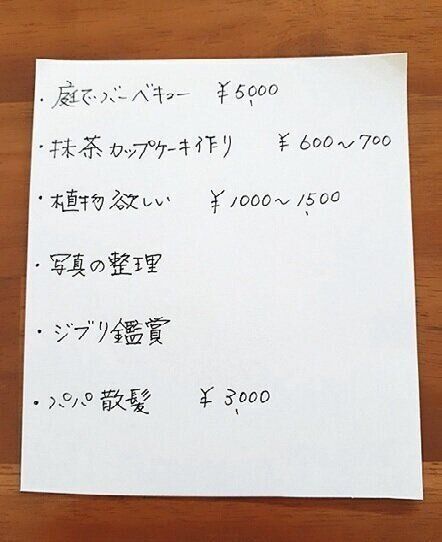 ・庭でバーベキュー ¥5,000
・抹茶カップケーキ作り ¥600〜700
・植物欲しい ¥1000〜1,500
・写真の整理
・ジブリ鑑賞
・パパ散髪 ¥3,000